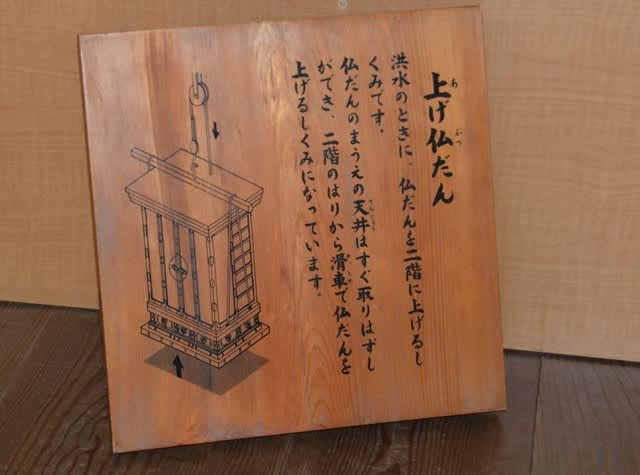 上げ仏だん
洪水のときに、仏だんを二階に上げるし
くみです。
仏だんのまうえの天井はすぐ取りはずし
ができ、二階のはりから滑車で仏だんを
上げるしくみになっています。